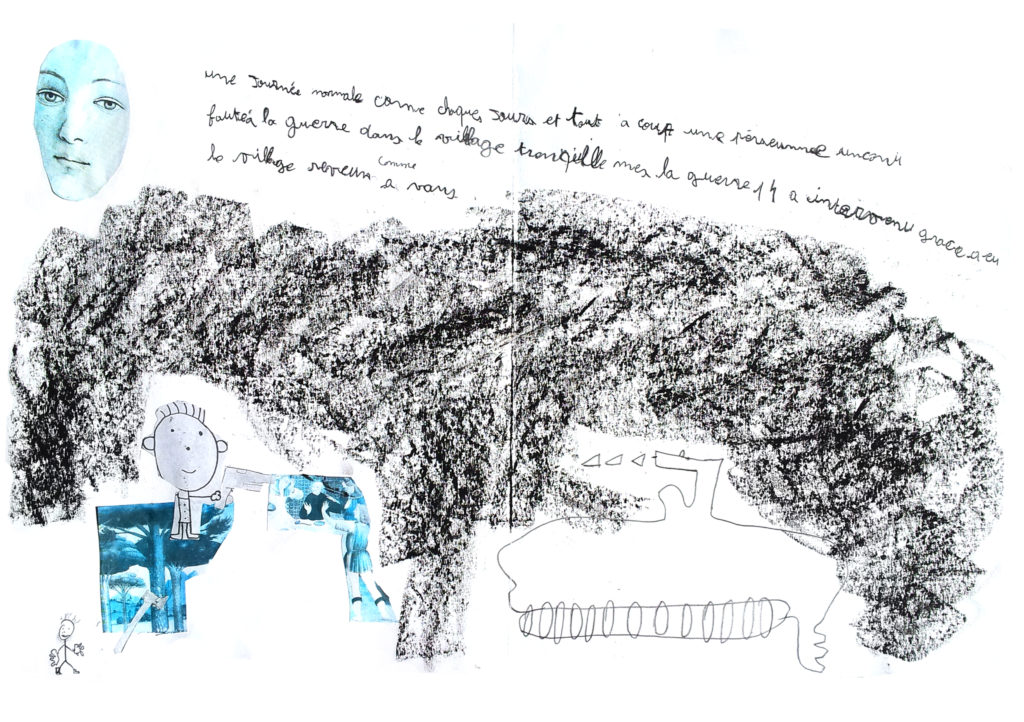 une journée normale come chaques jours et tout a coup une perseunne inconu
a la guerre dans le village tranquille mes la guerre 14 a intervenu grace a eu
le village comme a vans